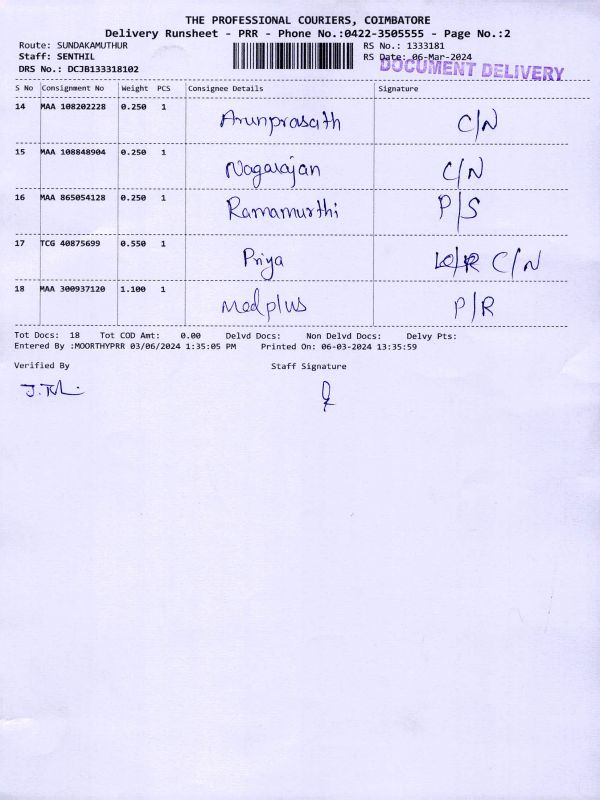 THE PROFESSIONAL COURIERS, COIMBATORE
Delivery Runsheet - PRR - Phone No.:0422-3505555 - Page No.:2
Route: SUNDAKAMUTHUR RS No.: 1333181
Staff: SENTHIL RS Date: 06-Mar-2024
DRS No.: DCJB133318102 DOCUMENT DELIVERY
S No Consignment No Weight PCS Consignee Details Signature
14 MAA 108202228 0.250 1 Arunprasath C/N
15 MAA 108848904 0.250 1 Nagarajan C/N
16 MAA 865054128 0.250 1 Ramamurthi P/S
17 TCG 40875699 0.550 1 Priya C/N
18 MAA 300937120 1.100 1 Medplus P/R
Tot Docs: 18 Tot COD Amt: 0.00 Delvd Docs: Non Delvd Docs: Delvy Pts:
Entered By :MOORTHYPRR 03/06/2024 1:35:05 PM Printed On: 06-03-2024 13:35:59
Verified By Staff Signature